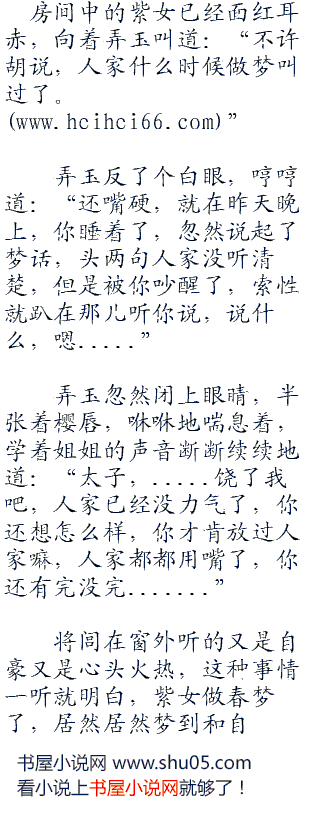 房间中的紫女已经面红耳
赤，向着弄玉叫道：“不许
胡说，人家什么时候做梦叫
过了。
(www.hcihci66.com)”
弄玉反了个白眼，哼哼
道：“还嘴硬，就在昨天晚
上，你睡着了，忽然说起了
梦话，头两句人家没听清
楚，但是被你吵醒了，索性
就趴在那儿听你说，说什
么，嗯.....”
弄玉忽然闭上眼睛，半
张着樱唇，咻咻地喘息着，
学着姐姐的声音断断续续地
道：“太子，.....饶了我
吧，人家已经没力气了，你
还想怎么样，你才肯放过人
家嘛，人家都都用嘴了，你
还有完没完.......”
将闾在窗外听的又是自
豪又是心头火热，这种事情
一听就明白，紫女做春梦
了，居然居然梦到和自
书屋小说网 www.shu05.com
看小说上书屋小说网就够了！